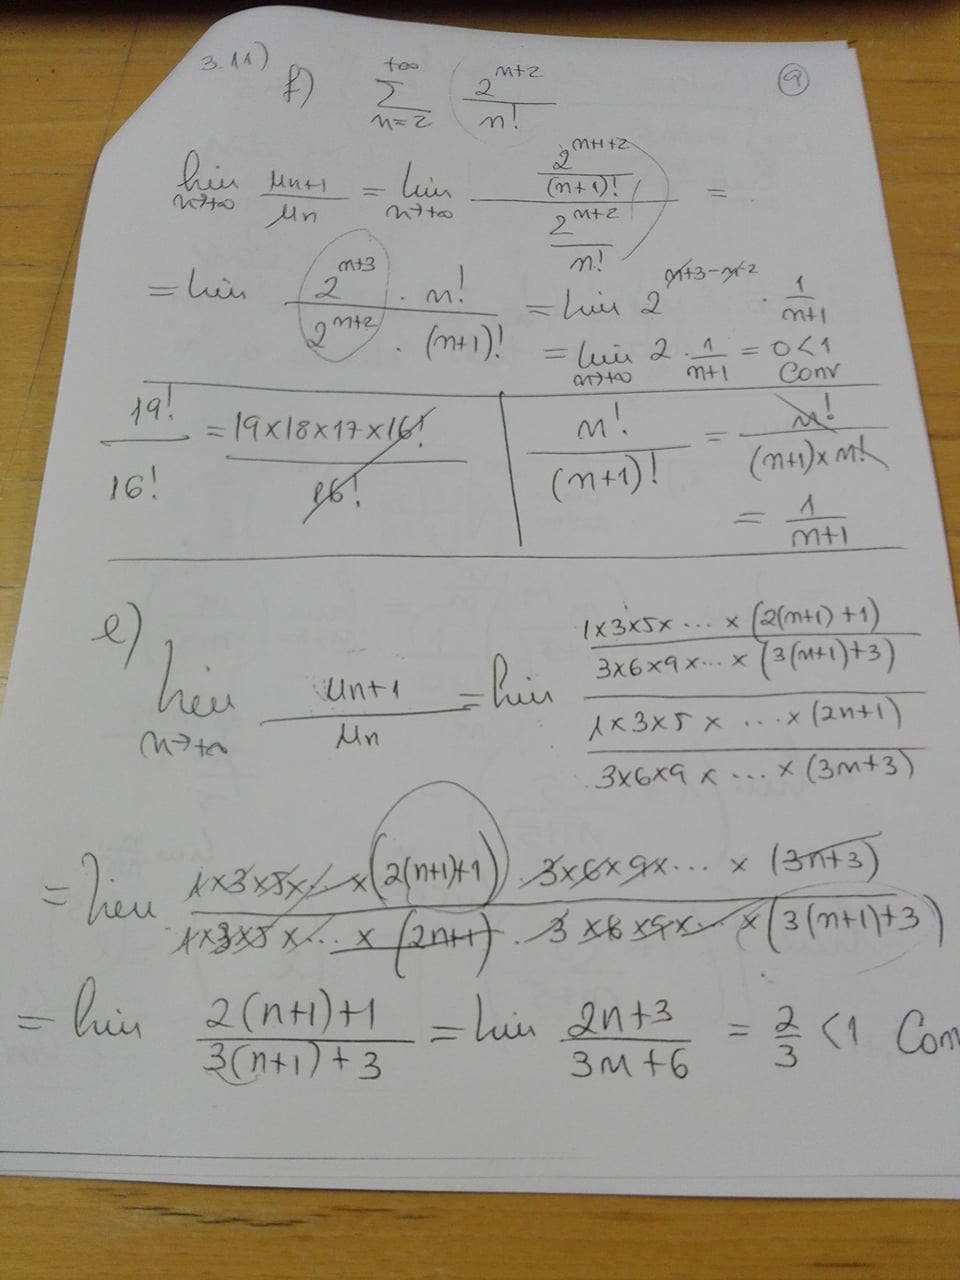 3.11)
f) \sum_{n=2}^{+\infty} \left( \frac{2^{n+2}}{n!} \right. (9)
\lim_{n \to +\infty} \frac{u_{n+1}}{u_n} = \lim_{n \to +\infty} \frac{\frac{2^{n+1+2}}{(n+1)!}}{\frac{2^{n+2}}{n!}} =
= lim \frac{2^{n+3} \cdot n!}{2^{n+2} \cdot (n+1)!} = lim 2^{n+3-n-2} \cdot \frac{1}{n+1}
= \lim_{n \to +\infty} 2 \cdot \frac{1}{n+1} = 0 < 1
Conv
\frac{19!}{16!} = \frac{19×18×17×16!}{16!}
\frac{n!}{(n+1)!} = \frac{n!}{(n+1)×n!}
= \frac{1}{n+1}
e)
\lim_{n \to +\infty} \frac{u_{n+1}}{u_n} = lim \frac{\frac{1×3×5×...×(2(n+1)+1)}{3×6×9×...×(3(n+1)+3)}}{\frac{1×3×5×...×(2n+1)}{3×6×9×...×(3n+3)}}
= lim \frac{1×3×5×...×(2(n+1)+1) \cdot 3×6×9×...×(3n+3)}{1×3×5×...×(2n+1) \cdot 3×6×9×...×(3(n+1)+3)}
= lim \frac{2(n+1)+1}{3(n+1)+3} = lim \frac{2n+3}{3n+6} = \frac{2}{3} < 1 Con